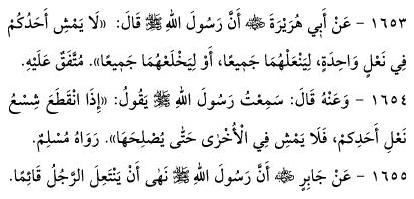 ١٦٥٣ - عَنْ أَبِي هُرَيْرَةَ ﵁ أَنَّ رَسُولَ اللهِ ﷺ قَالَ: «لَا يَمْشِ أَحَدُكُمْ
فِي نَعْلٍ وَاحِدَةٍ، لِيَنْعَلْهُمَا جَمِيعًا، أَوْ لِيَخْلَعْهُمَا جَمِيعًا». مُتَّفَقٌ عَلَيْهِ.
١٦٥٤ - وَعَنْهُ قَالَ: سَمِعْتُ رَسُولَ اللهِ ﷺ يَقُولُ: «إِذَا انْقَطَعَ شِسْعُ
نَعْلِ أَحَدِكُمْ، فَلَا يَمْشِ فِي الْأُخْرَى حَتَّى يُصْلِحَهَا». رَوَاهُ مُسْلِمٌ.
١٦٥٥ - عَنْ جَابِرٍ ﵁ أَنَّ رَسُولَ اللهِ ﷺ نَهَى أَنْ يَنْتَعِلَ الرَّجُلُ قَائِمًا.